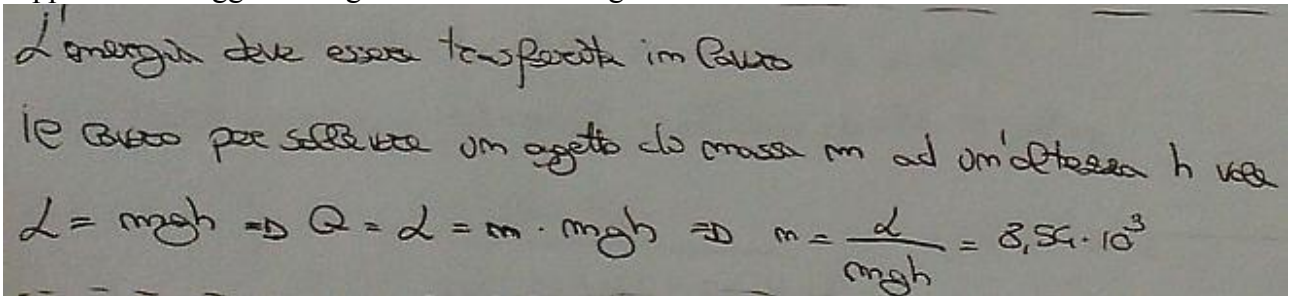 L'energia deve essere trasferita in lavoro
il lavoro per sollevare un oggetto di massa m ad un'altezza h vale
L = mgh => Q = L = n · mgh => n = L / mgh = 8,54 · 10³